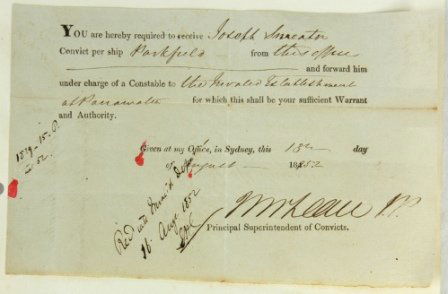 YOU are hereby required to receive Joseph Smeaton
Convict per ship Parkfield from this office
and forward him
under charge of a Constable to the Invalid Establishment
at Parramatta for which this shall be your sufficient Warrant
and Authority.
Given at my Office, in Sydney, this 13th day
of August 1852
Principal Superintendent of Convicts.
16 Augt 1852